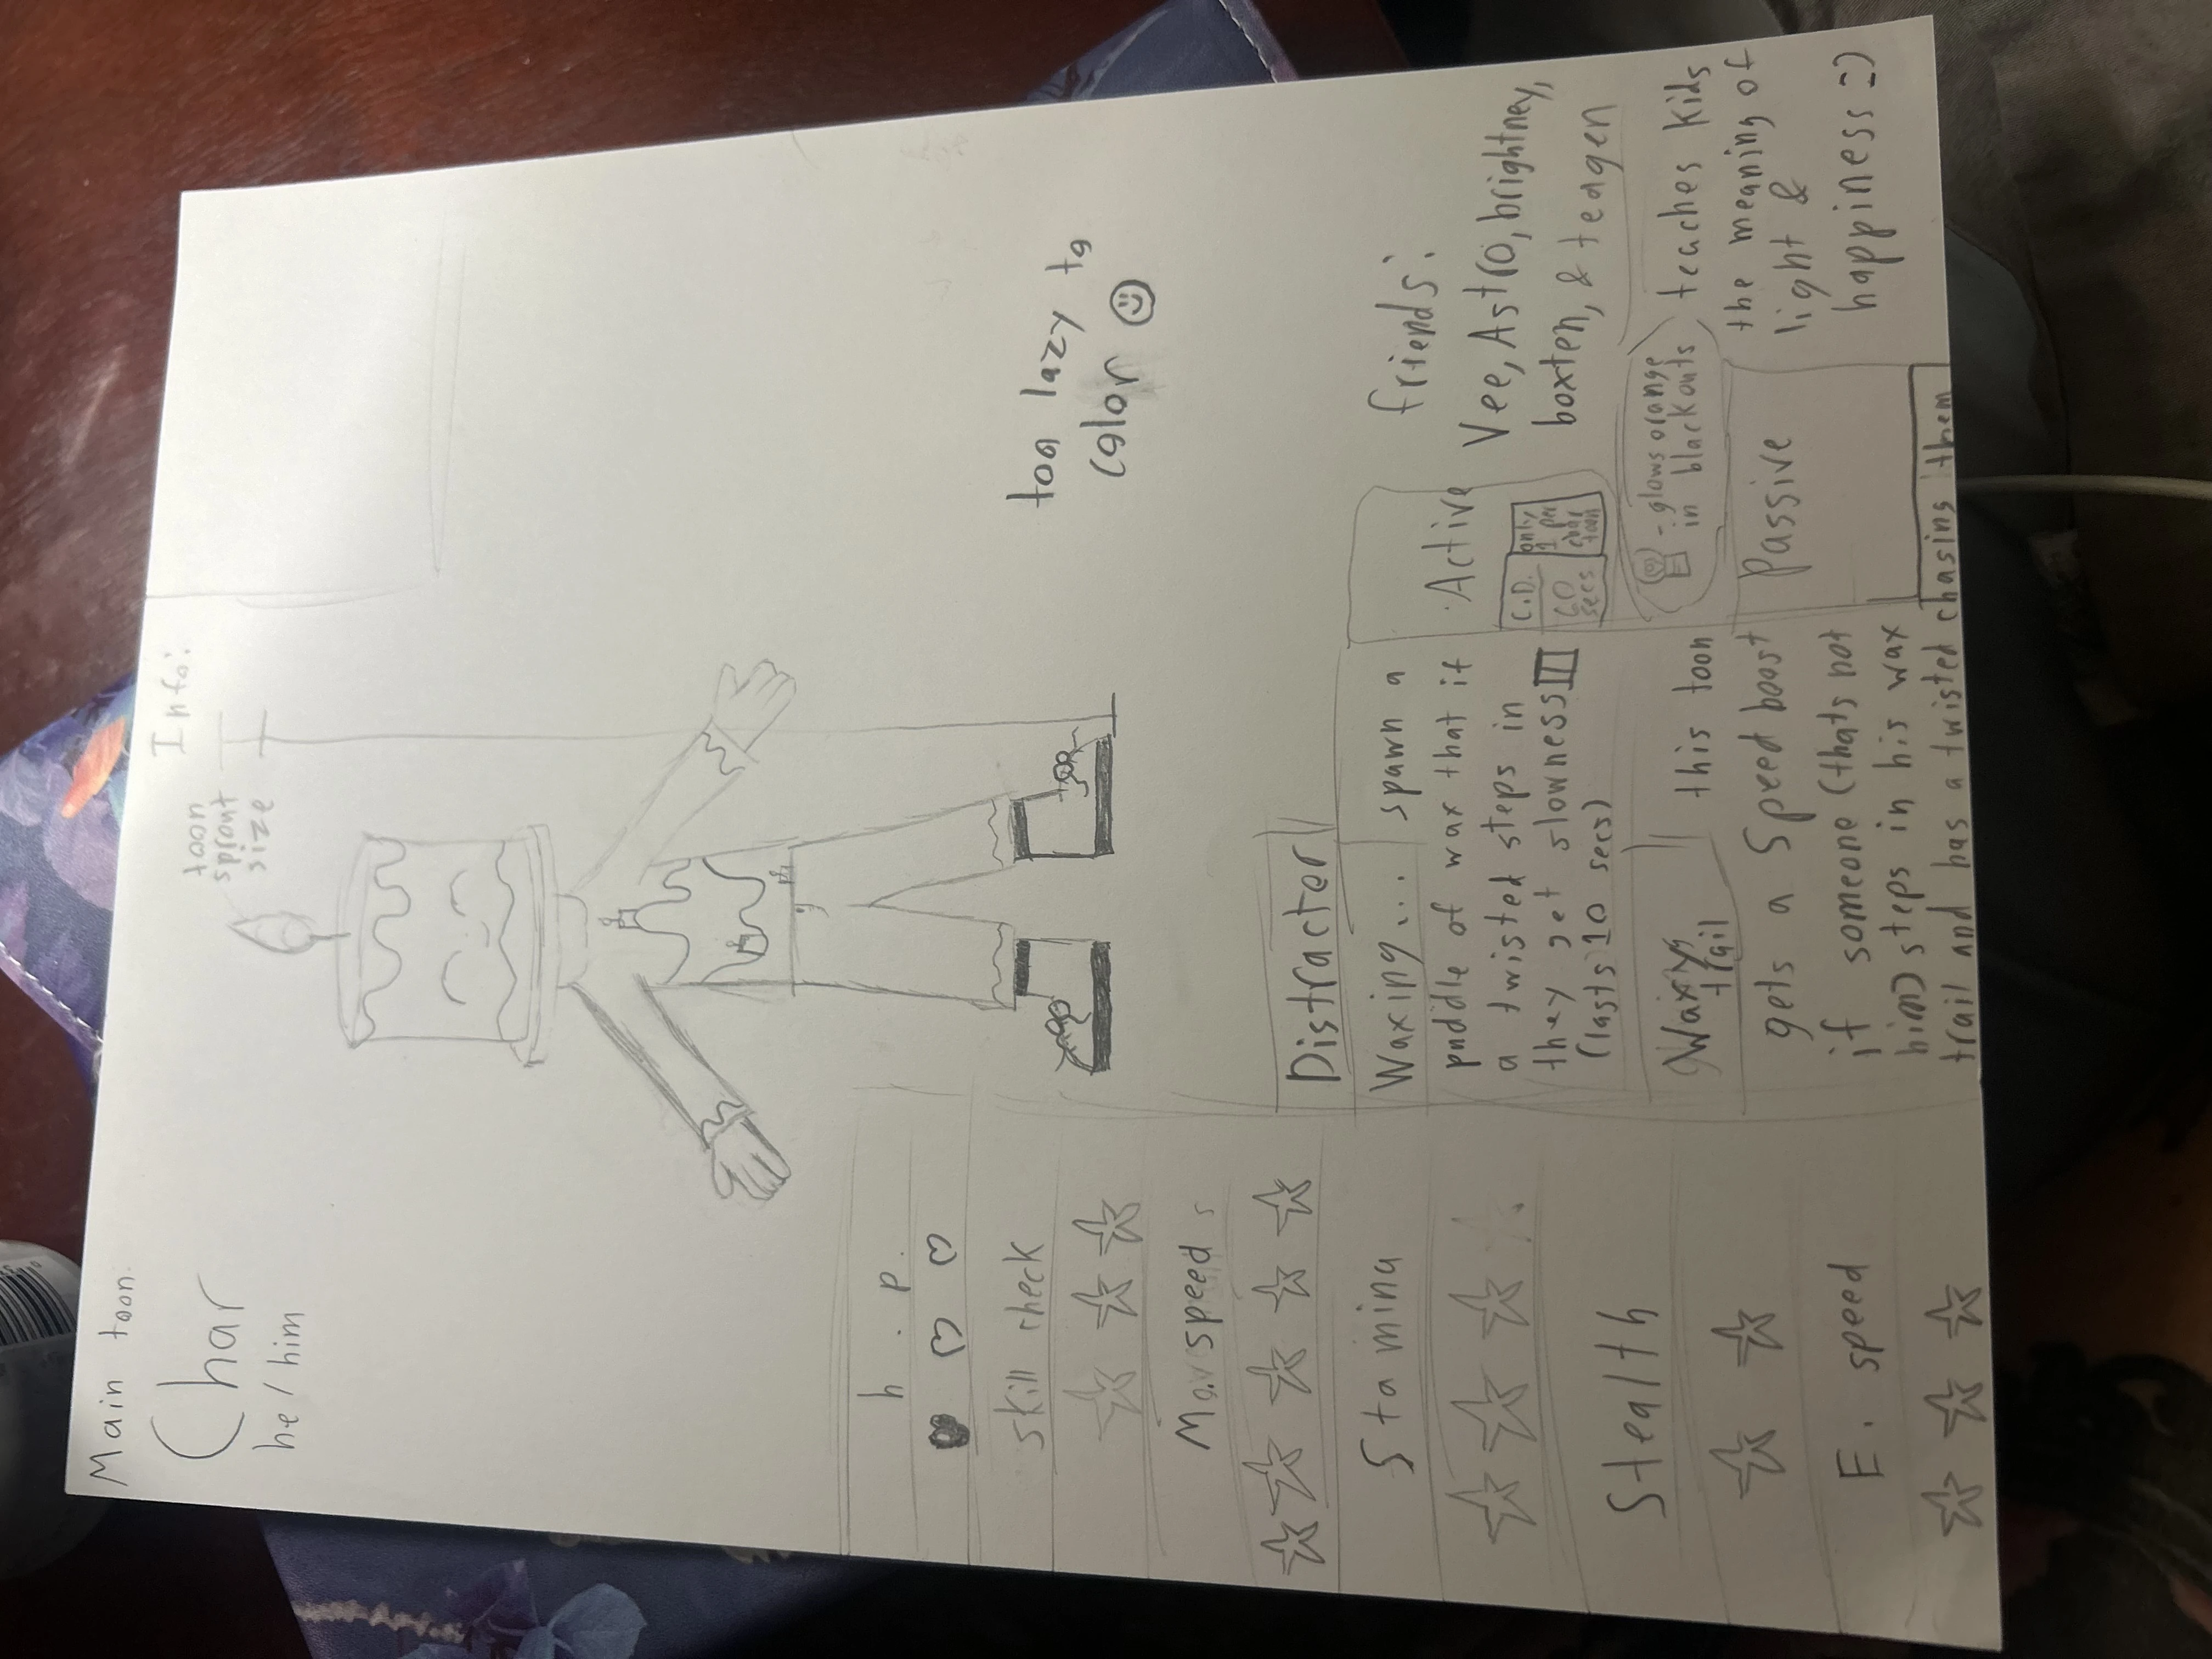 Main toon:
Char
he/him
Info:
toon
sprout
size
h.p.
skill check
Mov speed
Stamina
Stealth
E. speed
too lazy to
color
Distracter
Waxing... spawn a
puddle of wax that if
a twisted steps in
they get slowness II
(lasts 10 secs)
Active
C.D.
60
secs
only
1 per
char
toon
Waxy
trail
this toon
gets a speed boost
if someone (thats not
him) steps in his wax
trail and has a twisted chasing them
Passive
- glows orange
in blackouts
friends:
Vee, Astro, brightney,
boxten, & teagen
teaches kids
the meaning of
light &
happiness =)